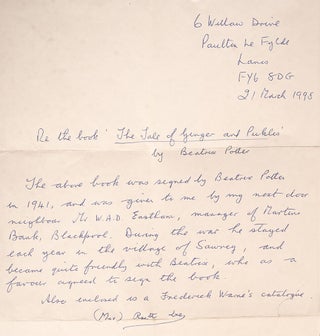 6 Willow Drive
Poulton Le Fylde
Lancs
FY6 8DG
21 March 1998
Re the book 'The Tale of Ginger and Pickles'
by Beatrix Potter
The above book was signed by Beatrix Potter
in 1941, and was given to me by my next door
neighbour Mr W.A.D. Eastham, manager of Martins
Bank, Blackpool. During the war he stayed
each year in the village of Sawrey, and
became quite friendly with Beatrix, who as a
favour agreed to sign the book.
Also enclosed is a Frederick Warne's catalogue.
(Mrs)